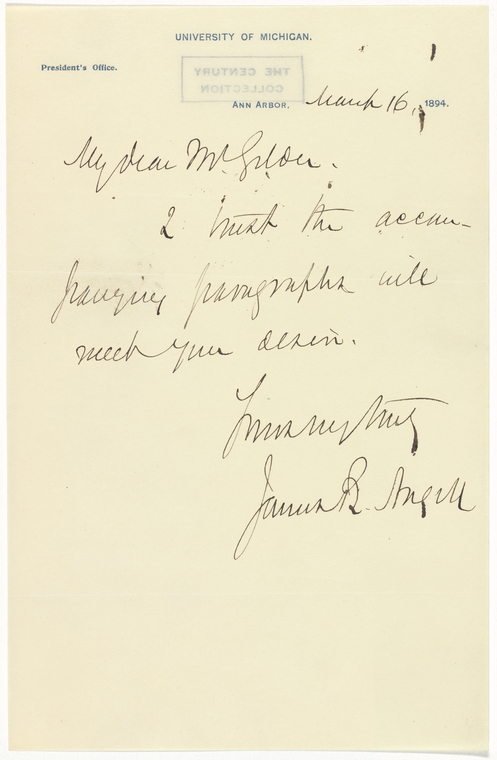 UNIVERSITY OF MICHIGAN.
President's Office.
THE CENTURY
COLLECTION
ANN ARBOR, March 16, 1894.
My dear Mr. Gilder.
I trust the accom-
panying paragraphs will
meet your desire.
Yours very truly
James B. Angell